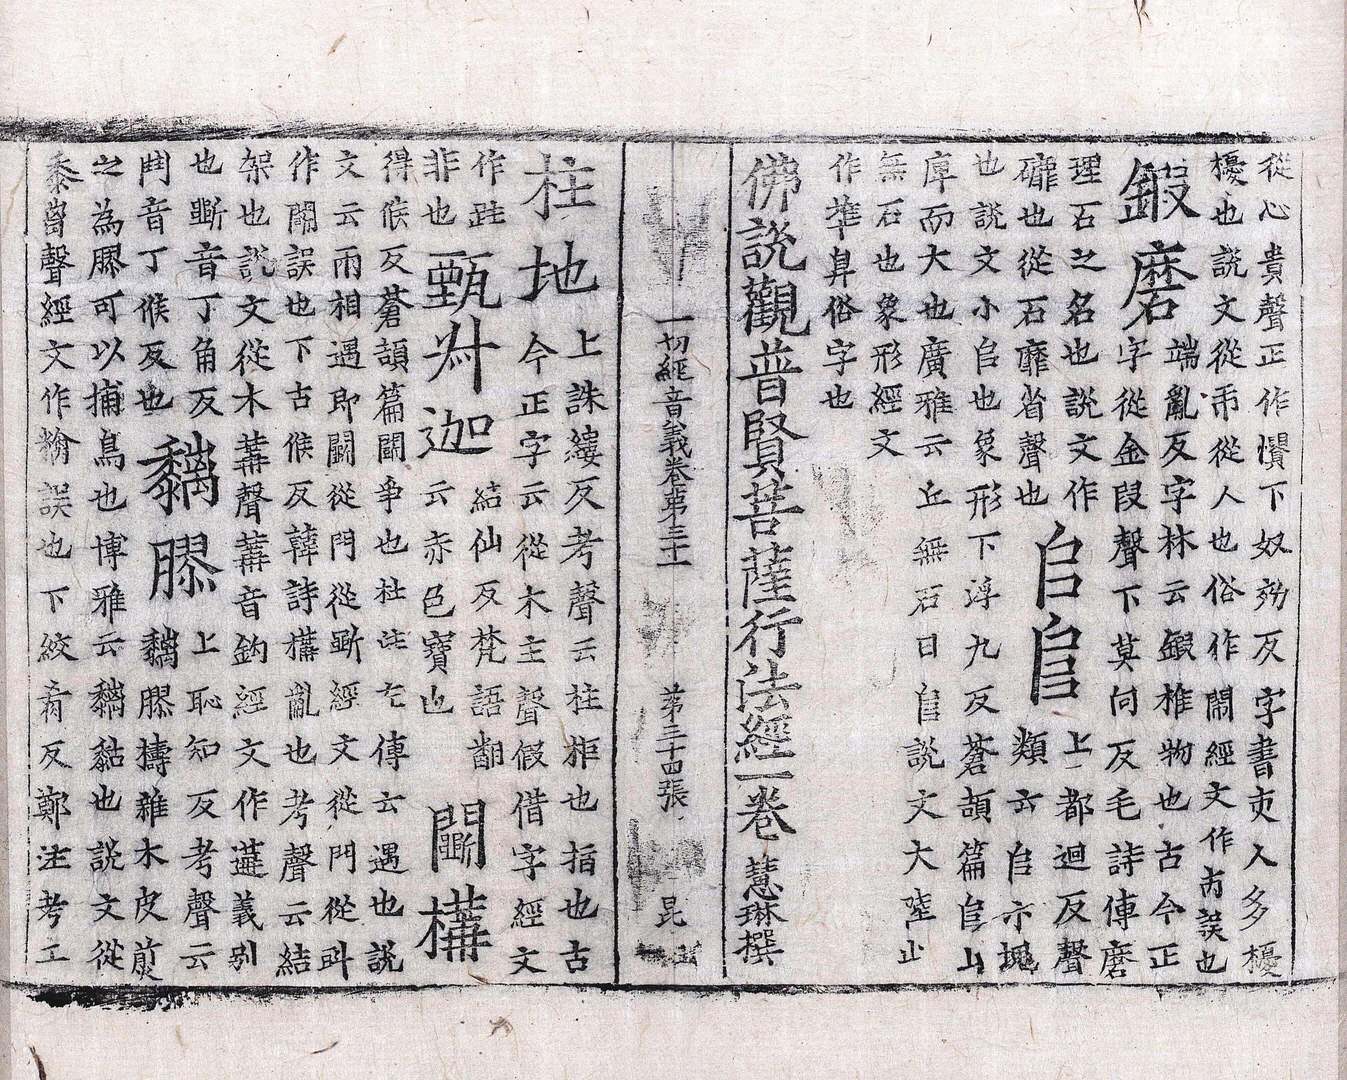 從心貴聲正作憒下奴効反字書吏人多擾
擾也說文從市從人也俗作鬧經文作𠕋誤也
鍛磨端亂反字林云鍛椎物也古今正
字從金段聲下莫向反毛詩傳磨
理石之名也說文作
礲也從石靡省聲也
𠂤𨸏上都迴反聲
類云𠂤亦塊
也說文小𠂤也象形下浮九反蒼頡篇𨸏山
庳而大也廣雅云丘無石曰𨸏說文大陸山
無石也象形經文
作埠𫠠俗字也
佛說觀普賢菩薩行法經一卷 慧琳撰
一切經音義卷第三十 第三十四張 昆
柱地上誅縷反考聲云柱拒也指也古
今正字云從木主聲假借字經文
作跓
非也
甄叔迦結仙反梵語翻
云赤色寶也
鬬構
得候反蒼頡篇鬬爭也杜注左傳云遇也說
文云兩相遇即鬬從鬥從斲經文從門從斗
作閗誤也下古候反韓詩構亂也考聲云結
架也說文從木冓聲冓音鈎經文作遘義別
也斲音丁角反
鬥音丁候反也
黐膠上恥知反考聲云
黐膠擣雜木皮煎
之為膠可以捕鳥也博雅云黐黏也說文從
黍离聲經文作𥻿誤也下絞肴反鄭注考工